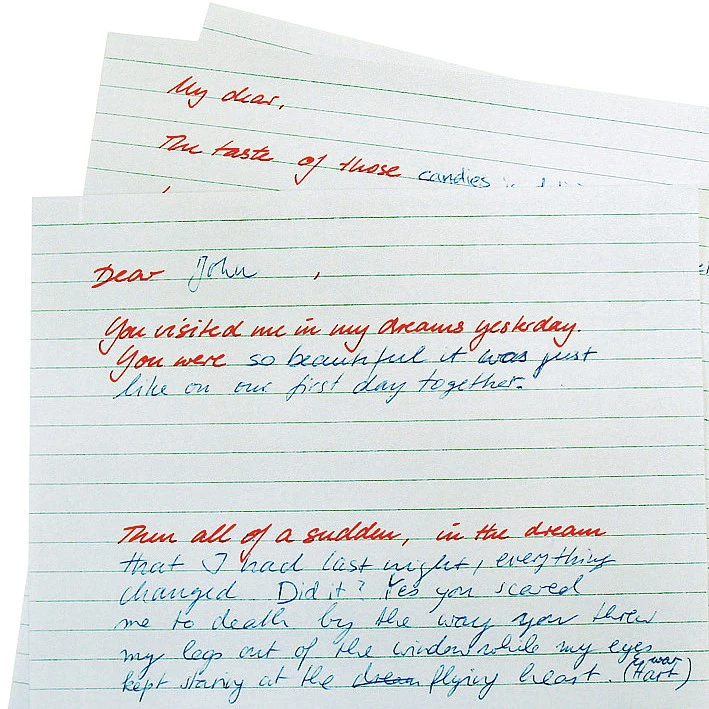 My dear,
The taste of those candies
Dear John ,
You visited me in my dreams yesterday.
You were so beautiful it was just
like on our first day together.
Then all of a sudden, in the dream
that I had last night, everything
changed. Did it? Yes you scared
me to death by the way you threw
my legs out of the window while my eyes
kept staring at the dream flying heart. (Hart)